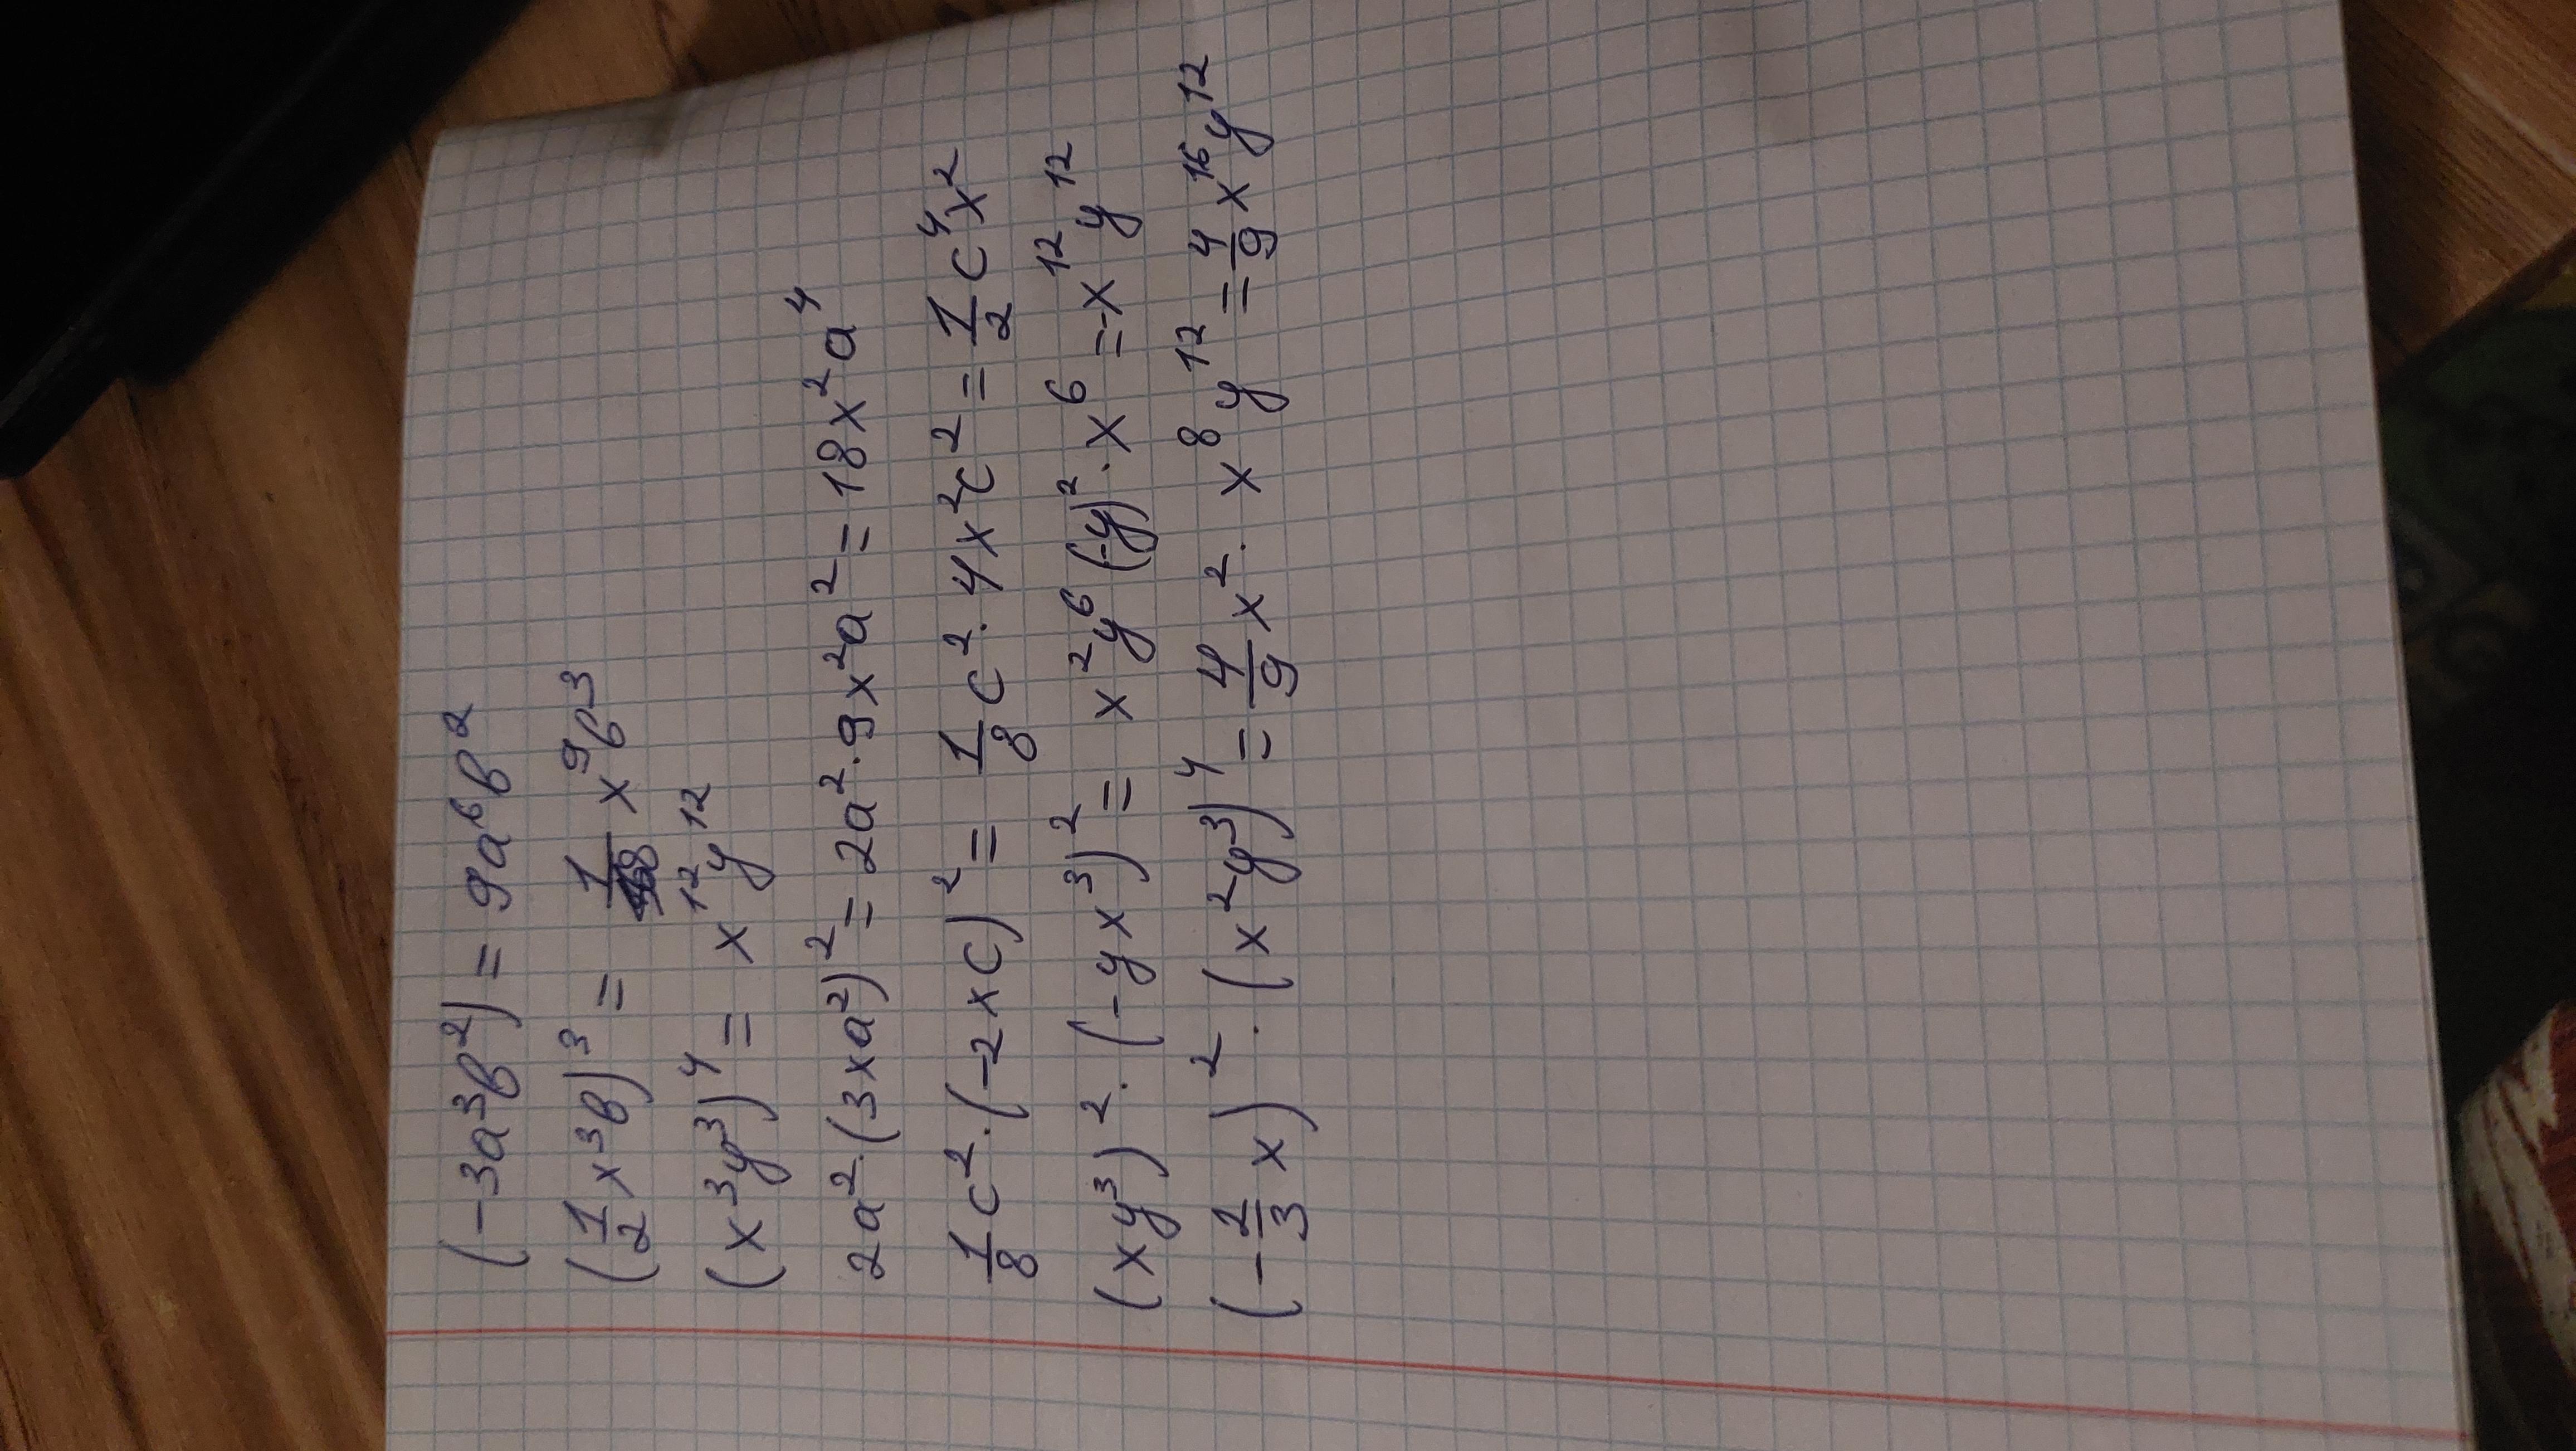 (-3a³b²) = 9a⁶b²
(1/2 x³b)³ = 1/8 x⁹b³
(x³y³)⁴ = x¹²y¹²
2a²·(3xa²)² = 2a²·9x²a² = 18x²a⁴
1/8 c²·(-2xc)² = 1/8 c²·4x²c² = 1/2 c⁴x²
(xy³)²·(-yx³)² = x²y⁶(-y)²·x⁶ = -x¹²y¹²
(-2/3 x)²·(x²y³)⁴ = 4/9 x²·x⁸y¹² = 4/9 x¹⁶y¹²